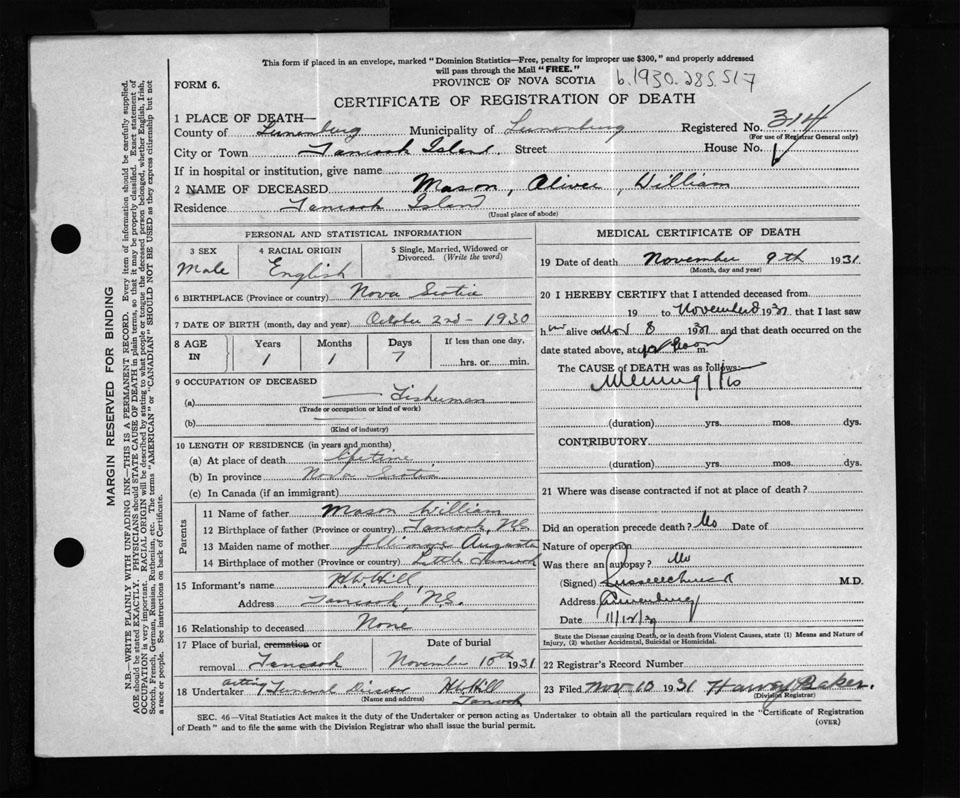 This form if placed in an envelope, marked "Dominion Statistics—Free, penalty for improper use $300," and properly addressed
will pass through the Mail "FREE."
FORM 6.
PROVINCE OF NOVA SCOTIA
b.1930.285.517
CERTIFICATE OF REGISTRATION OF DEATH
1 PLACE OF DEATH—
County of Lunenburg Municipality of Lunenburg Registered No. 314
(For use of Registrar General only)
City or Town Tancook Island Street House No.
If in hospital or institution, give name
2 NAME OF DECEASED Mason, Oliver, William
Residence Tancook Island
(Usual place of abode)
PERSONAL AND STATISTICAL INFORMATION
3 SEX 4 RACIAL ORIGIN 5 Single, Married, Widowed or
Divorced. (Write the word)
Male English
6 BIRTHPLACE (Province or country) Nova Scotia
7 DATE OF BIRTH (month, day and year) October 2nd - 1930
8 AGE IN Years Months Days If less than one day,
1 1 7 hrs. or min.
9 OCCUPATION OF DECEASED
(a) Fisherman
(Trade or occupation or kind of work)
(b)
(Kind of industry)
10 LENGTH OF RESIDENCE (in years and months)
(a) At place of death lifetime
(b) In province Nova Scotia
(c) In Canada (if an immigrant)
Parents
11 Name of father Mason William
12 Birthplace of father (Province or country) Tancook, N.S.
13 Maiden name of mother Augusta
14 Birthplace of mother (Province or country) Little Tancook
15 Informant's name H.W. Hill
Address Tancook, N.S.
16 Relationship to deceased None
17 Place of burial, cremation or Date of burial
removal Tancook November 10th 1931
18 Undertaker acting Funeral Director H.W. Hill
(Name and address) Tancook
MEDICAL CERTIFICATE OF DEATH
19 Date of death November 9th 1931
(Month, day and year)
20 I HEREBY CERTIFY that I attended deceased from
19 to November 8 1931 that I last saw
him alive on Nov 8 1931 and that death occurred on
date stated above, at noon m.
The CAUSE of DEATH was as follows:
Meningitis
(duration) yrs. mos. dys.
CONTRIBUTORY
(duration) yrs. mos. dys.
21 Where was disease contracted if not at place of death?
Did an operation precede death? No Date of
Nature of operation
Was there an autopsy? No
(Signed) M.D.
Address Lunenburg
Date
State the Disease causing Death, or in death from Violent Causes, state (1) Means and Nature of
Injury, (2) whether Accidental, Suicidal or Homicidal.
22 Registrar's Record Number
23 Filed Nov 10 1931 Harvey Baker.
(Division Registrar)
SEC. 46—Vital Statistics Act makes it the duty of the Undertaker or person acting as Undertaker to obtain all the particulars required in the "Certificate of Registration
of Death" and to file the same with the Division Registrar who shall issue the burial permit.
(OVER)
MARGIN RESERVED FOR BINDING
N.B.—WRITE PLAINLY WITH UNFADING INK—THIS IS A PERMANENT RECORD. Every item of information should be carefully supplied.
AGE should be stated EXACTLY. PHYSICIANS should STATE CAUSE OF DEATH in plain terms, so that it may be properly classified. Exact statement of
OCCUPATION is very important. RACIAL ORIGIN will be described by stating to what people or tongue the deceased person belonged, whether English, Irish,
Scotch, French, German, Russian, Ruthenian, etc. The terms "AMERICAN" or "CANADIAN" SHOULD NOT BE USED as they express citizenship but not
a race or people. See instructions on back of Certificate.